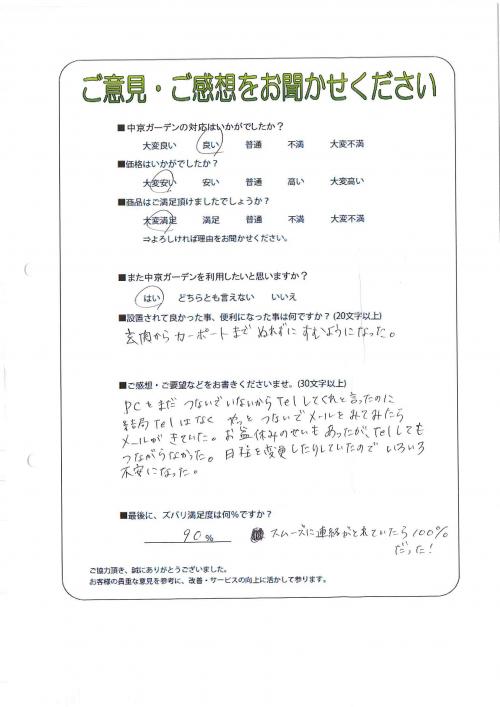 ご意見・ご感想をお聞かせください
■中京ガーデンの対応はいかがでしたか？
大変良い 良い 普通 不満 大変不満
■価格はいかがでしたか？
大変安い 安い 普通 高い 大変高い
■商品はご満足頂けましたでしょうか？
大変満足 満足 普通 不満 大変不満
⇒よろしければ理由をお聞かせください。
■また中京ガーデンを利用したいと思いますか？
はい どちらとも言えない いいえ
■設置されて良かった事、便利になった事は何ですか？(20文字以上)
玄関からカーポートまでぬれずにすむようになった。
■ご感想・ご要望などをお書きくださいませ。(30文字以上)
PCをまだつないでいないからTelしてくれと言ったのに
結局Telはなく やっとつないでメールをみてみたら
メールがきていた。お盆休みのせいもあったが、Telしても
つながらなかった。日程を変更したりしていたのでいろいろ
不安になった。
■最後に、ズバリ満足度は何％ですか？
90％ スムーズに連絡がとれていたら100％
だった！
ご協力頂き、誠にありがとうございました。
お客様の貴重な意見を参考に、改善・サービスの向上に活かして参ります。